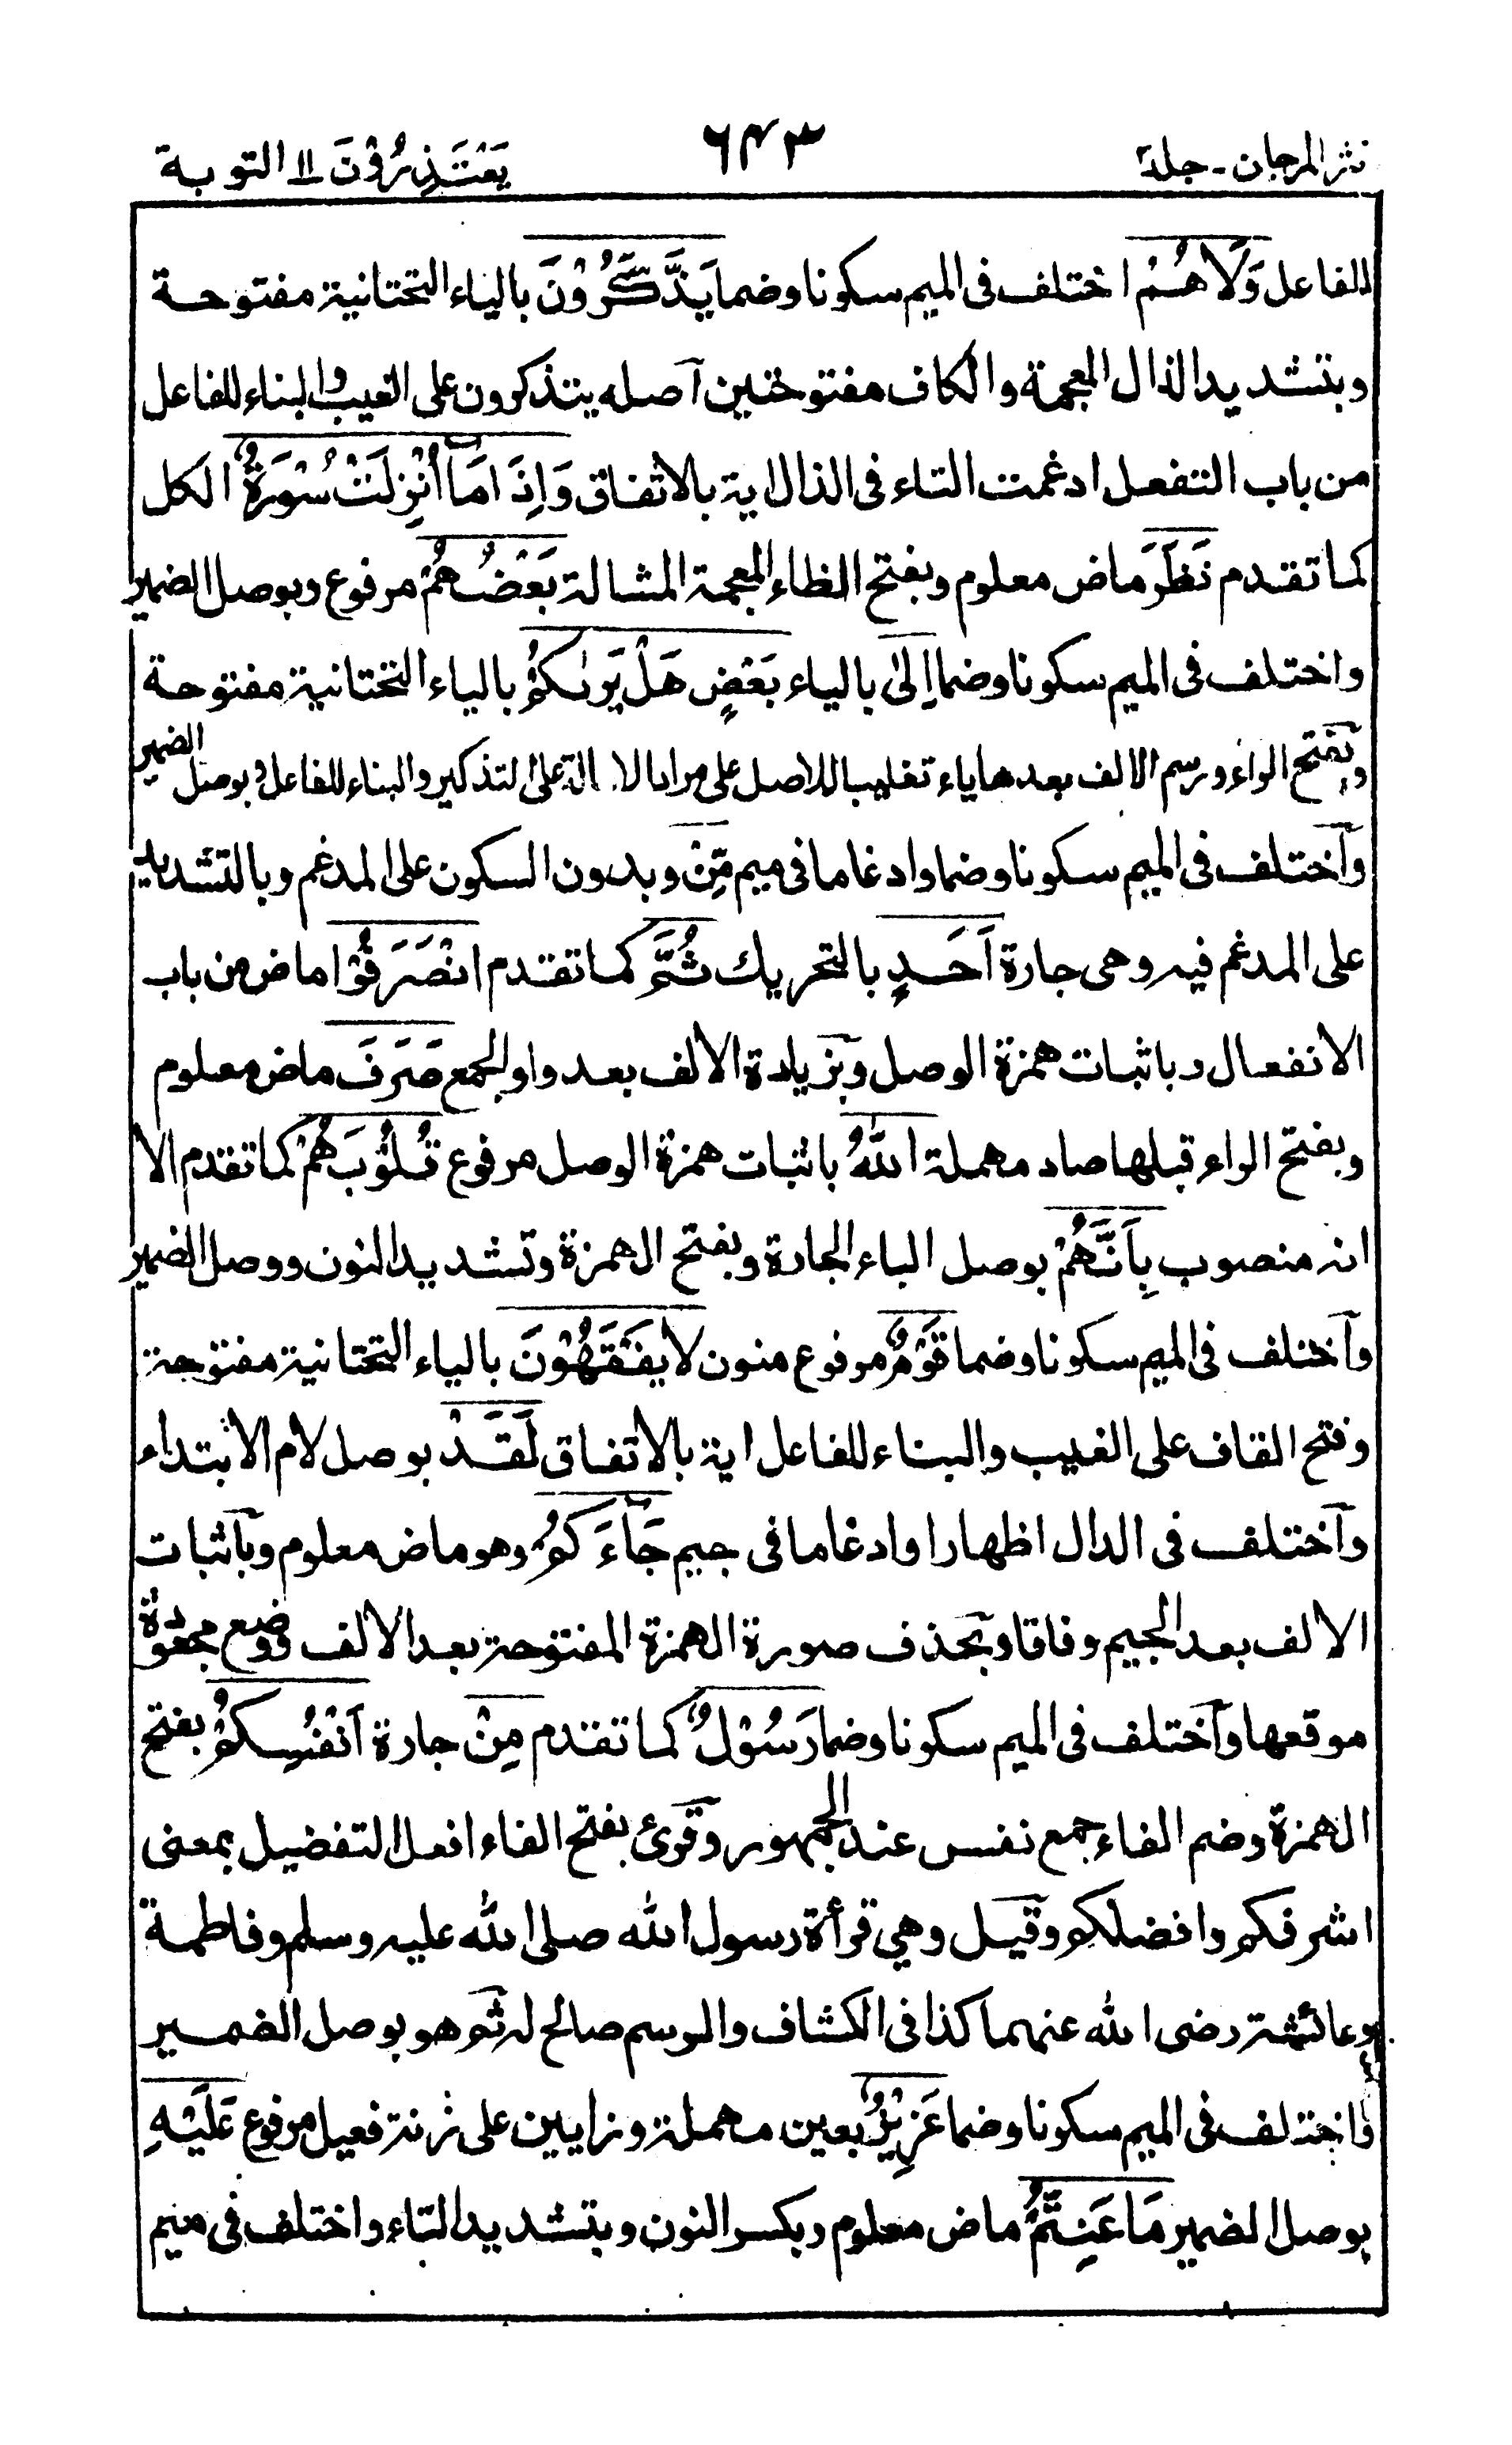 نثر المرجان - جلد٢
٦٤٣
يَعْتَذِرُوْنَ ١١ التوبة
للفاعل وَلَا هُمْ اختلف فى الميم سكونا وضما يَذَّكَّرُوْنَ بالياء التحتانية مفتوحة
وبتشديد الذال المعجمة والكاف مفتوحتين آصله يتذكرون على الغيب والبناء للفاعل
من باب التفعل ادغمت التاء فى الذال اية بالاتفاق وَإِذَا مَآ أُنْزِلَتْ سُوْرَةٌ الكل
كما تقدم نَظَرَ ماض معلوم وبفتح الظاء المعجمة المشالة بَعْضُهُمْ مرفوع وبوصل الضمير
واختلف فى الميم سكونا وضما إِلىٰ بالياء بَعْضٍ هَلْ يَرٰىكُمْ بالياء التحتانية مفتوحة
وبفتح الراء ورسم الالف بعدها ياء تغليبا للاصل على مراد الامالة على التذكير والبناء للفاعل وبوصل الضمير
وآختلف فى الميم سكونا وضما وادغاما فى ميم مِّنْ وبدون السكون على المدغم وبالتشديد
على المدغم فيه وهى جارة اَحَدٍ بالتحريك ثُمَّ كما تقدم انْصَرَفُوْا ماض من باب
الانفعال وباثبات همزة الوصل وبزيادة الالف بعد واو الجمع صَرَفَ ماض معلوم
وبفتح الراء قبلها صاد مهملة اللّٰهُ باثبات همزة الوصل مرفوع قُلُوْبَهُمْ كما تقدم الا
انه منصوب بِاَنَّهُمْ بوصل الباء الجارة وبفتح الهمزة وتشديد النون ووصل الضمير
وآختلف فى الميم سكونا وضما قَوْمٌ مرفوع منون لَا يَفْقَهُوْنَ بالياء التحتانية مفتوحة
وفتح القاف على الغيب والبناء للفاعل اية بالاتفاق لَقَدْ بوصل لام الابتداء
وآختلف فى الدال اظهارا وادغاما فى جيم جَآءَكُمْ وهو ماض معلوم وبآثبات
الالف بعد الجيم وفاقا وبحذف صورة الهمزة المفتوحة بعد الالف ووضع مجعودة
موقعها وآختلف فى الميم سكونا وضما رَسُوْلٌ كما تقدم مِنْ جارة اَنْفُسِكُمْ بفتح
الهمزة وضم الفاء جمع نفس عند الجمهور وقرئ بفتح الفاء افعل التفضيل بمعنى
اشرفكم وافضلكم وقيل وهي قرأة رسول الله صلى الله عليه وسلم وفاطمة
وعائشة رضى الله عنهما كذا فى الكشاف والرسم صالح له ثم هو بوصل الضمير
واختلف فى الميم سكونا وضما عَزِيْزٌ بعين مهملة وزايين على زنة فعيل مرفوع عَلَيْهِ
بوصل الضمير مَا عَنِتُّمْ ماض معلوم وبكسر النون وبتشديد التاء واختلف فى ميم